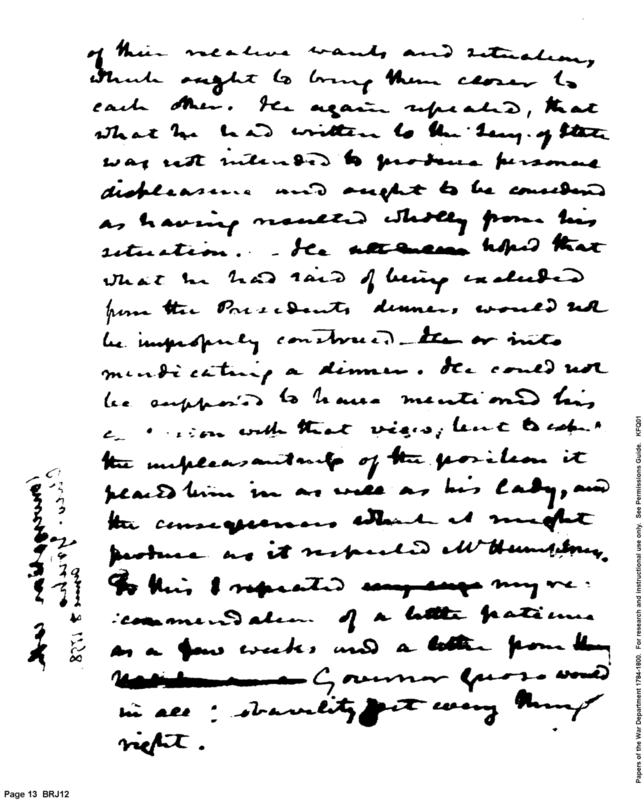 of their relative wants and situation,
which ought to bring them closer to
each other. He again repeated, that
what he had written to the Secy. of State
was not intended to produce personal
displeasure and ought to be considered
as having resulted wholly from his
situation. - He hoped that
what he had said of being excluded
from the Presidents dinners, would not
be improperly construed or into
mendicating a dinner. He could not
be supposed to have mentioned his
with that view; but to
the unpleasantness of the position it
placed him in as well as his lady, and
the consequences which it might
produce as it respected Mr Humphreys.
To this I repeated my re:
:commendation of a little patience
as a few weeks and a letter from
Governor would
in all : bability set every thing
right.
Conversation with
Page 13 BRJ12
Papers of the War Department 1784-1800. For research and instructional use only. See Permissions Guide. KFQ01